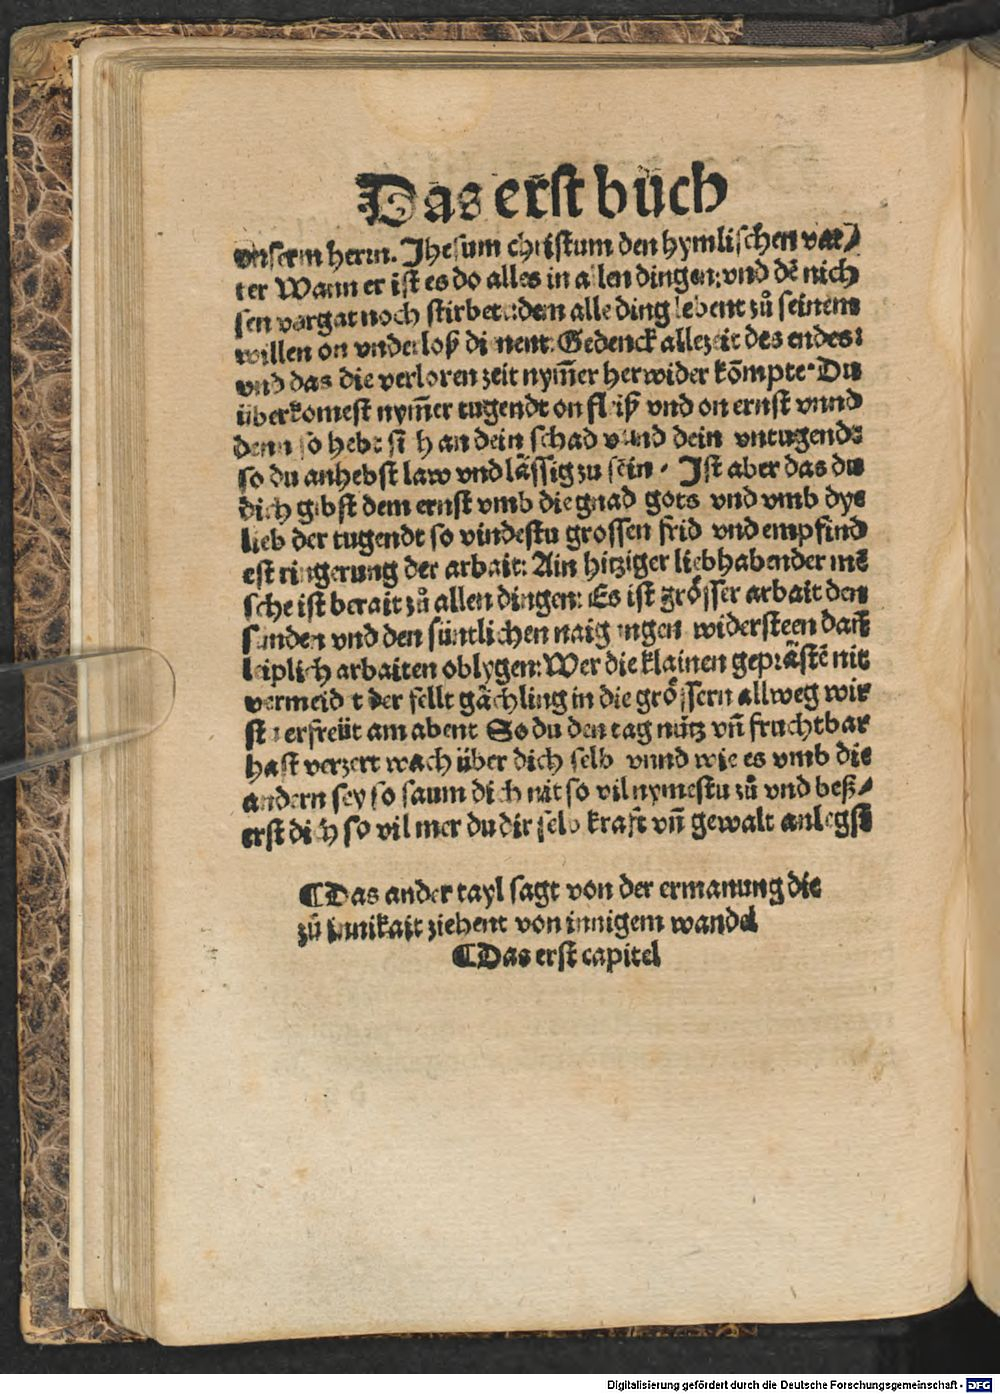 Das erst buch
vnserm herrn. Jhesum christum den hymlischen vat⸗
ter Wann er ist es do alles in allen dingen: vnd dē nich
sen vorgat noch stirbet: dem alle ding lebent zů seinem
willen on vnderloß dienent. Gedenck allezeit des endes:
vnd das die verloren zeit nym̄er herwider kōmpte. Du
überkomest nym̄er tugendt on fleiß vnd on ernst vnnd
denn so hebt sich an dein schad vnnd dein vntugendt
so du anhebst law vnd lässig zu sein. Jst aber das du
dich gibst dem ernst vmb die gnad gots vnd vmb dye
lieb der tugendt so vindestu grossen frid vnd empfind
est ringerung der arbait: Ain hitziger liebhabender mē
sche ist berait zů allen dingen: Es ist grösser arbait den
sunden vnd den süntlichen naigungen widersteen dañ
leiplich arbaiten oblygen: Wer die klainen geprästē nit
vermeidet der fellt gächling in die grössern allweg wir
stu erfreüt am abent So du den tag nütz vñ fruchtbar
hast verzert wach über dich selb vnnd wie es vmb die
andern sey so saum dich nit so vil nymestu zů vnd beß⸗
erst dich so vil mer du dir selb kraft vñ gewalt anlegst
¶Das ander tayl sagt von der ermanung die
zů innikait ziehent von innigem wandel
¶Das erst capitel
Digitalisierung gefördert durch die Deutsche Forschungsgemeinschaft - DFG